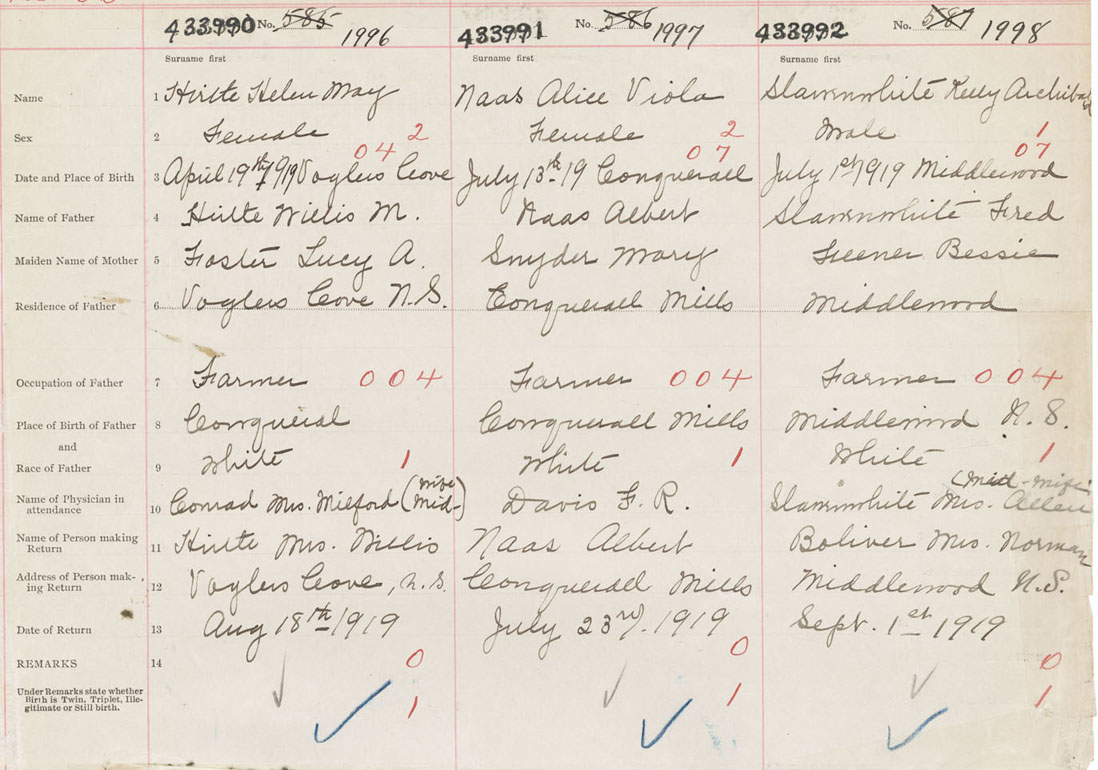 433990 No. 585 1996 433991 No. 586 1997 433992 No. 587 1998
Surname first Surname first Surname first
Name 1 Hirtle Helen May Naas Alice Viola Slawnwhite Kelly Archibald
Sex 2 Female 2 Female 2 Male 1
04 07 07
Date and Place of Birth 3 April 19th 1919 Voglers Cove July 13th 19 Conquerall July 1st 1919 Middlewood
Name of Father 4 Hirtle Willis M. Naas Albert Slawnwhite Fred
Maiden Name of Mother 5 Foster Lucy A. Snyder Mary Feener Bessie
Residence of Father 6 Voglers Cove N.S. Conquerall Mills Middlewood
Occupation of Father 7 Farmer 004 Farmer 004 Farmer 004
Place of Birth of Father 8 Conquerall Conquerall Mills Middlewood N.S.
and
Race of Father 9 White 1 White 1 White 1
Name of Physician in
attendance 10 Conrad Mrs. Milford (Mid-wife) Davis F. R. Slawnwhite Mrs. Allen (Mid-wife
Name of Person making
Return 11 Hirtle Mrs. Willis Naas Albert Boliver Mrs. Norman
Address of Person mak-
ing Return 12 Voglers Cove, N.S. Conquerall Mills Middlewood N.S.
Date of Return 13 Aug 18th 1919 July 23rd. 1919 Sept. 1st 1919
REMARKS 14 0 0 0
Under Remarks state whether
Birth is Twin, Triplet, Ille-
gitimate or Still birth. 1 1 1